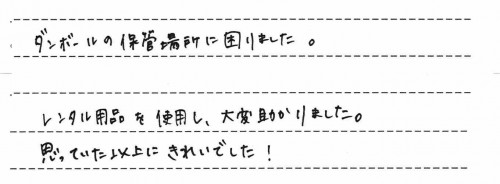 ダンボールの保管場所に困りました。
レンタル用品を使用し、大変助かりました。
思っていた以上にきれいでした！